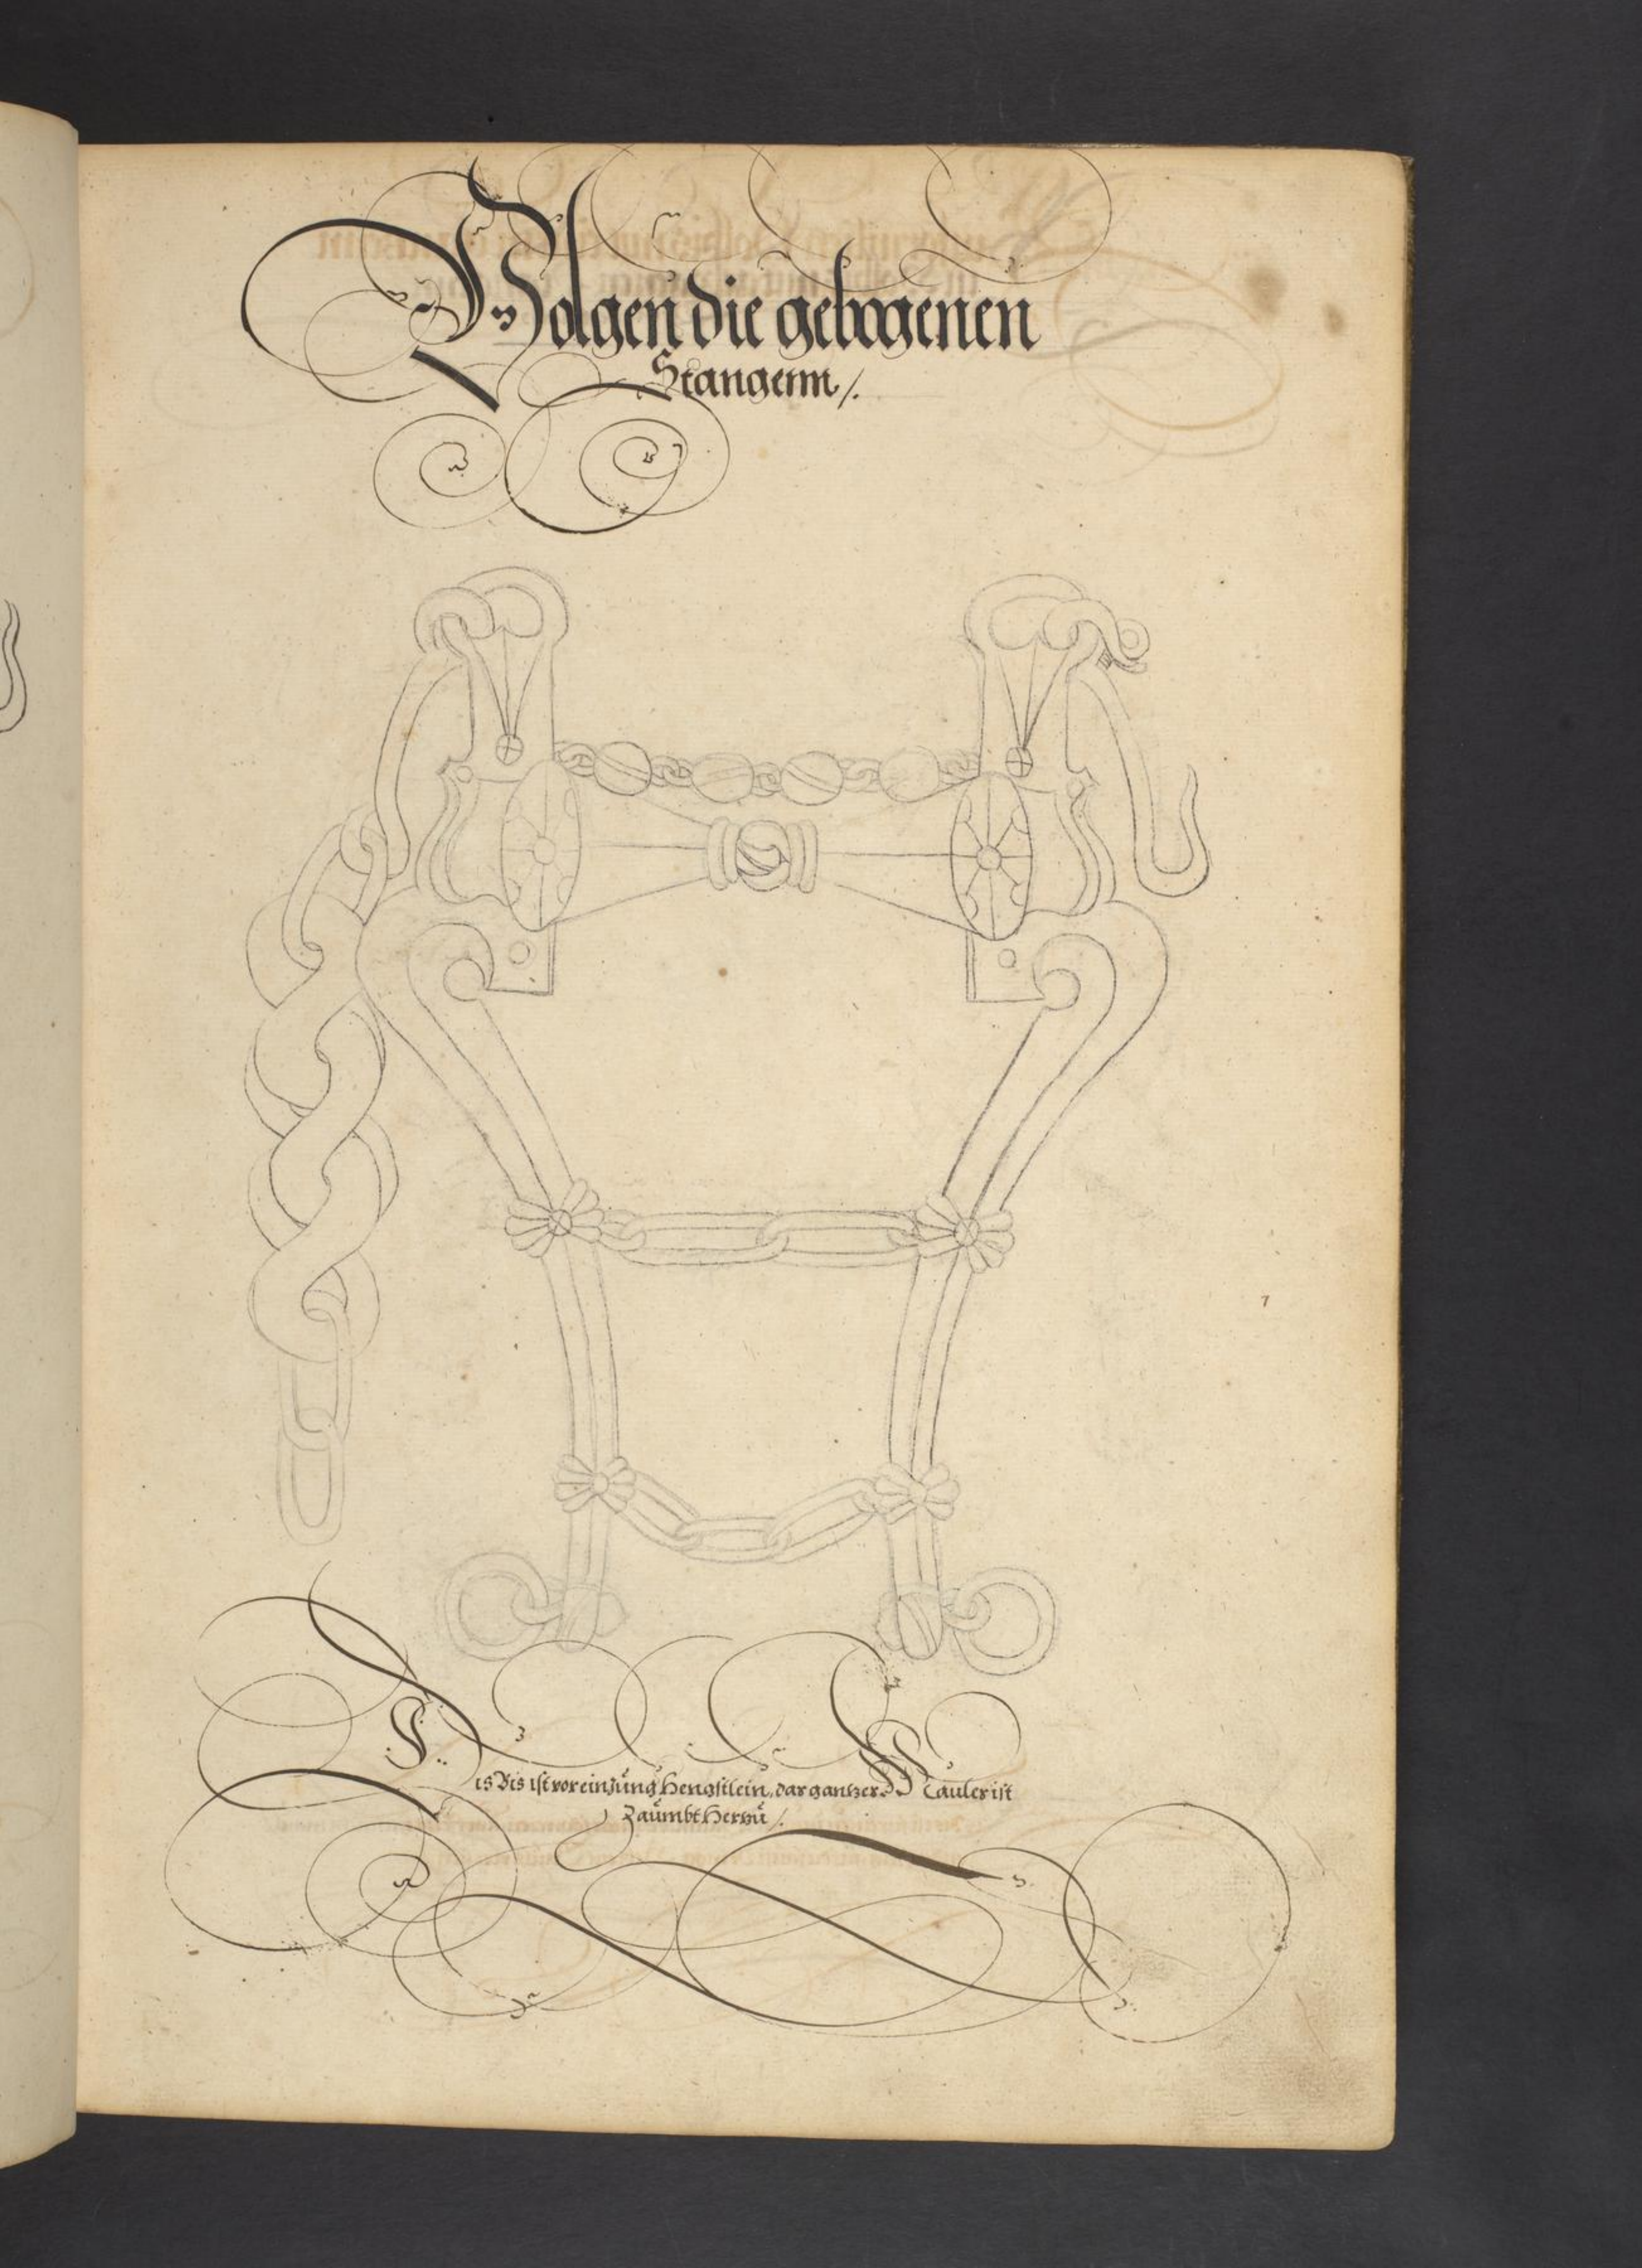 Volgen die gebogenen
Stangenn /.
Dis Bis ist vor ein Jung Hengstlein, dar gantzer Mauler ist
Zäumbt Herzu /.